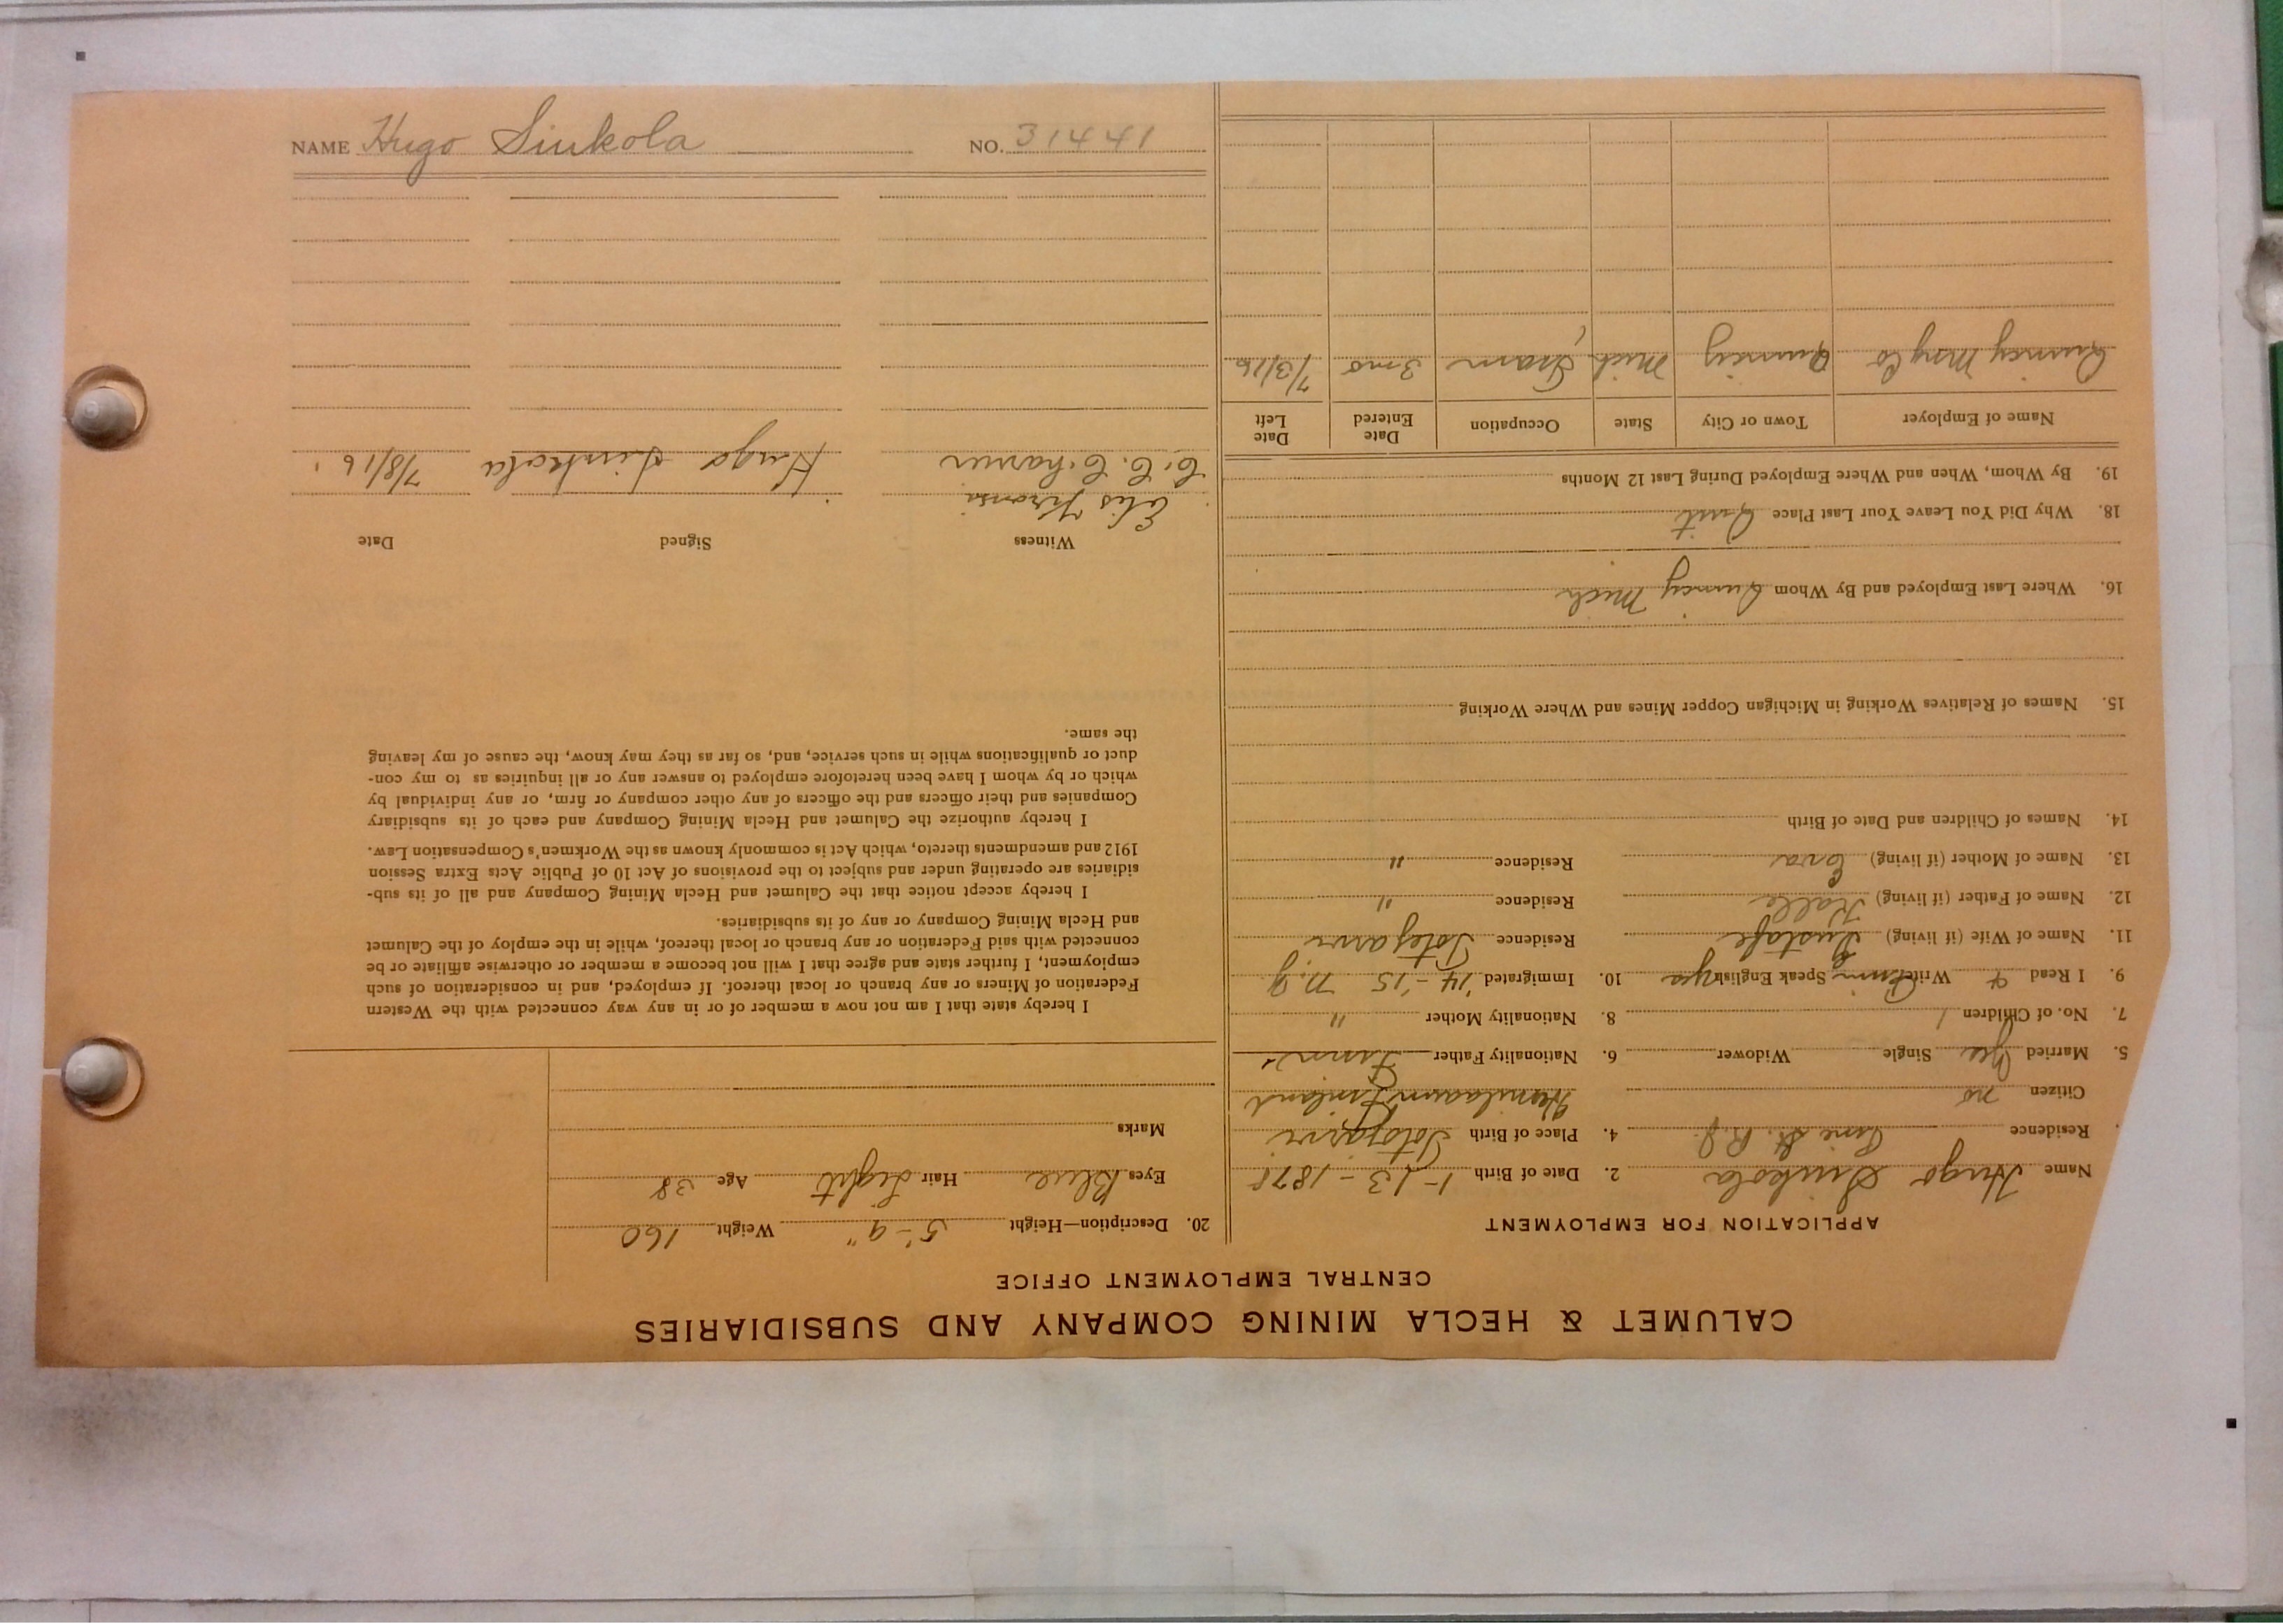 NAME Hugo Sinkola NO. 31441
CALUMET & HECLA MINING COMPANY AND SUBSIDIARIES
CENTRAL EMPLOYMENT OFFICE
APPLICATION FOR EMPLOYMENT
Name Hugo Sinkola 2. Date of Birth 1-13-1878
Residence Pine St. R.J. 4. Place of Birth
Citizen no Finland
5. Married Yes Single Widower 6. Nationality Father Finn
7. No. of Children 1 8. Nationality Mother "
9. I Read & Write Finn Speak English 10. Immigrated '14-'15 N.Y.
11. Name of Wife (if living) Gustafe Residence
12. Name of Father (if living) Kalle Residence "
13. Name of Mother (if living) Eva Residence "
14. Names of Children and Date of Birth
15. Names of Relatives Working in Michigan Copper Mines and Where Working
16. Where Last Employed and By Whom Quincy Mich
18. Why Did You Leave Your Last Place Quit
19. By Whom, When and Where Employed During Last 12 Months
Name of Employer Town or City State Occupation Date Entered Date Left
Quincy Mng Co Quincy Mich Tram 3 mo 7/3/16
20. Description—Height 5'-9" Weight 160
Eyes Blue Hair Light Age 38
Marks
I hereby state that I am not now a member of or in any way connected with the Western
Federation of Miners or any branch or local thereof. If employed, and in consideration of such
employment, I further state and agree that I will not become a member or otherwise affiliate or be
connected with said Federation or any branch or local thereof, while in the employ of the Calumet
and Hecla Mining Company or any of its subsidiaries.
I hereby accept notice that the Calumet and Hecla Mining Company and all of its sub-
sidiaries are operating under and subject to the provisions of Act 10 of Public Acts Extra Session
1912 and amendments thereto, which Act is commonly known as the Workmen's Compensation Law.
I hereby authorize the Calumet and Hecla Mining Company and each of its subsidiary
Companies and their officers and the officers of any other company or firm, or any individual by
which or by whom I have been heretofore employed to answer any or all inquiries as to my con-
duct or qualifications while in such service, and, so far as they may know, the cause of my leaving
the same.
Witness Signed Date
Elis
C. C. Hugo Sinkola 7/8/16